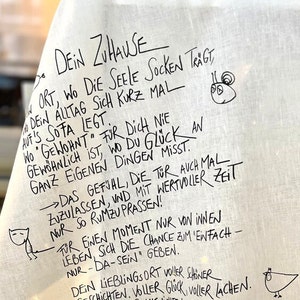 DEIN ZUHAUSE
ORT, WO DIE SEELE SOCKEN TRÄGT,
DEIN ALLTAG SICH KURZ MAL
AUF'S SOFA LEGT.
WO "GEWOHNT" FÜR DICH NIE
GEWÖHNLICH IST, WO DU GLÜCK AN
GANZ EIGENEN DINGEN MISST.
→ DAS GEFÜHL, DIE TÜR AUCH MAL
ZUZULASSEN, UND MIT WERTVOLLER ZEIT
NUR SO RUMZUPRASSEN!
FÜR EINEN MOMENT NUR VON INNEN
LEBEN, SICH DIE CHANCE ZUM "EINFACH-
NUR-DA-SEIN" GEBEN.
DEIN LIEBLINGSORT VOLLER
GESCHICHTEN, VOLLER GLÜCK, VOLLER LACHEN.